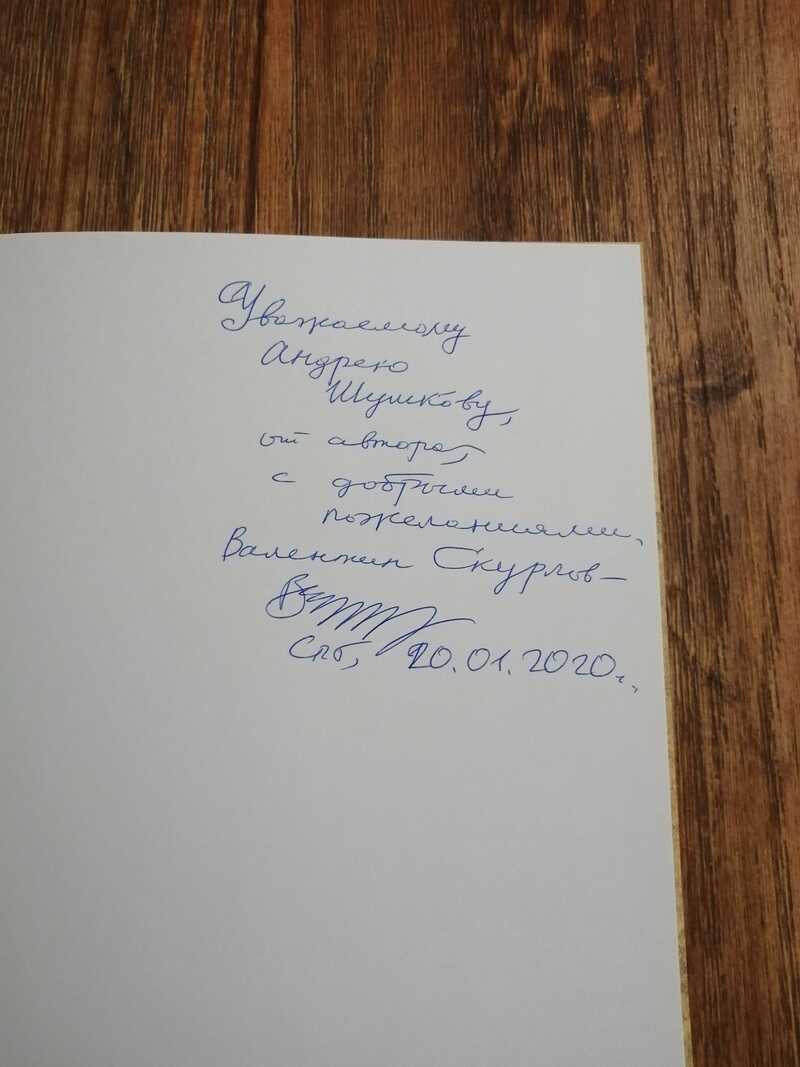 Уважаемому
Андрею
Шушкову,
от автора,
с добрыми
пожеланиями.
Валентин Скурлов –
Спб, 20.01.2020г.,